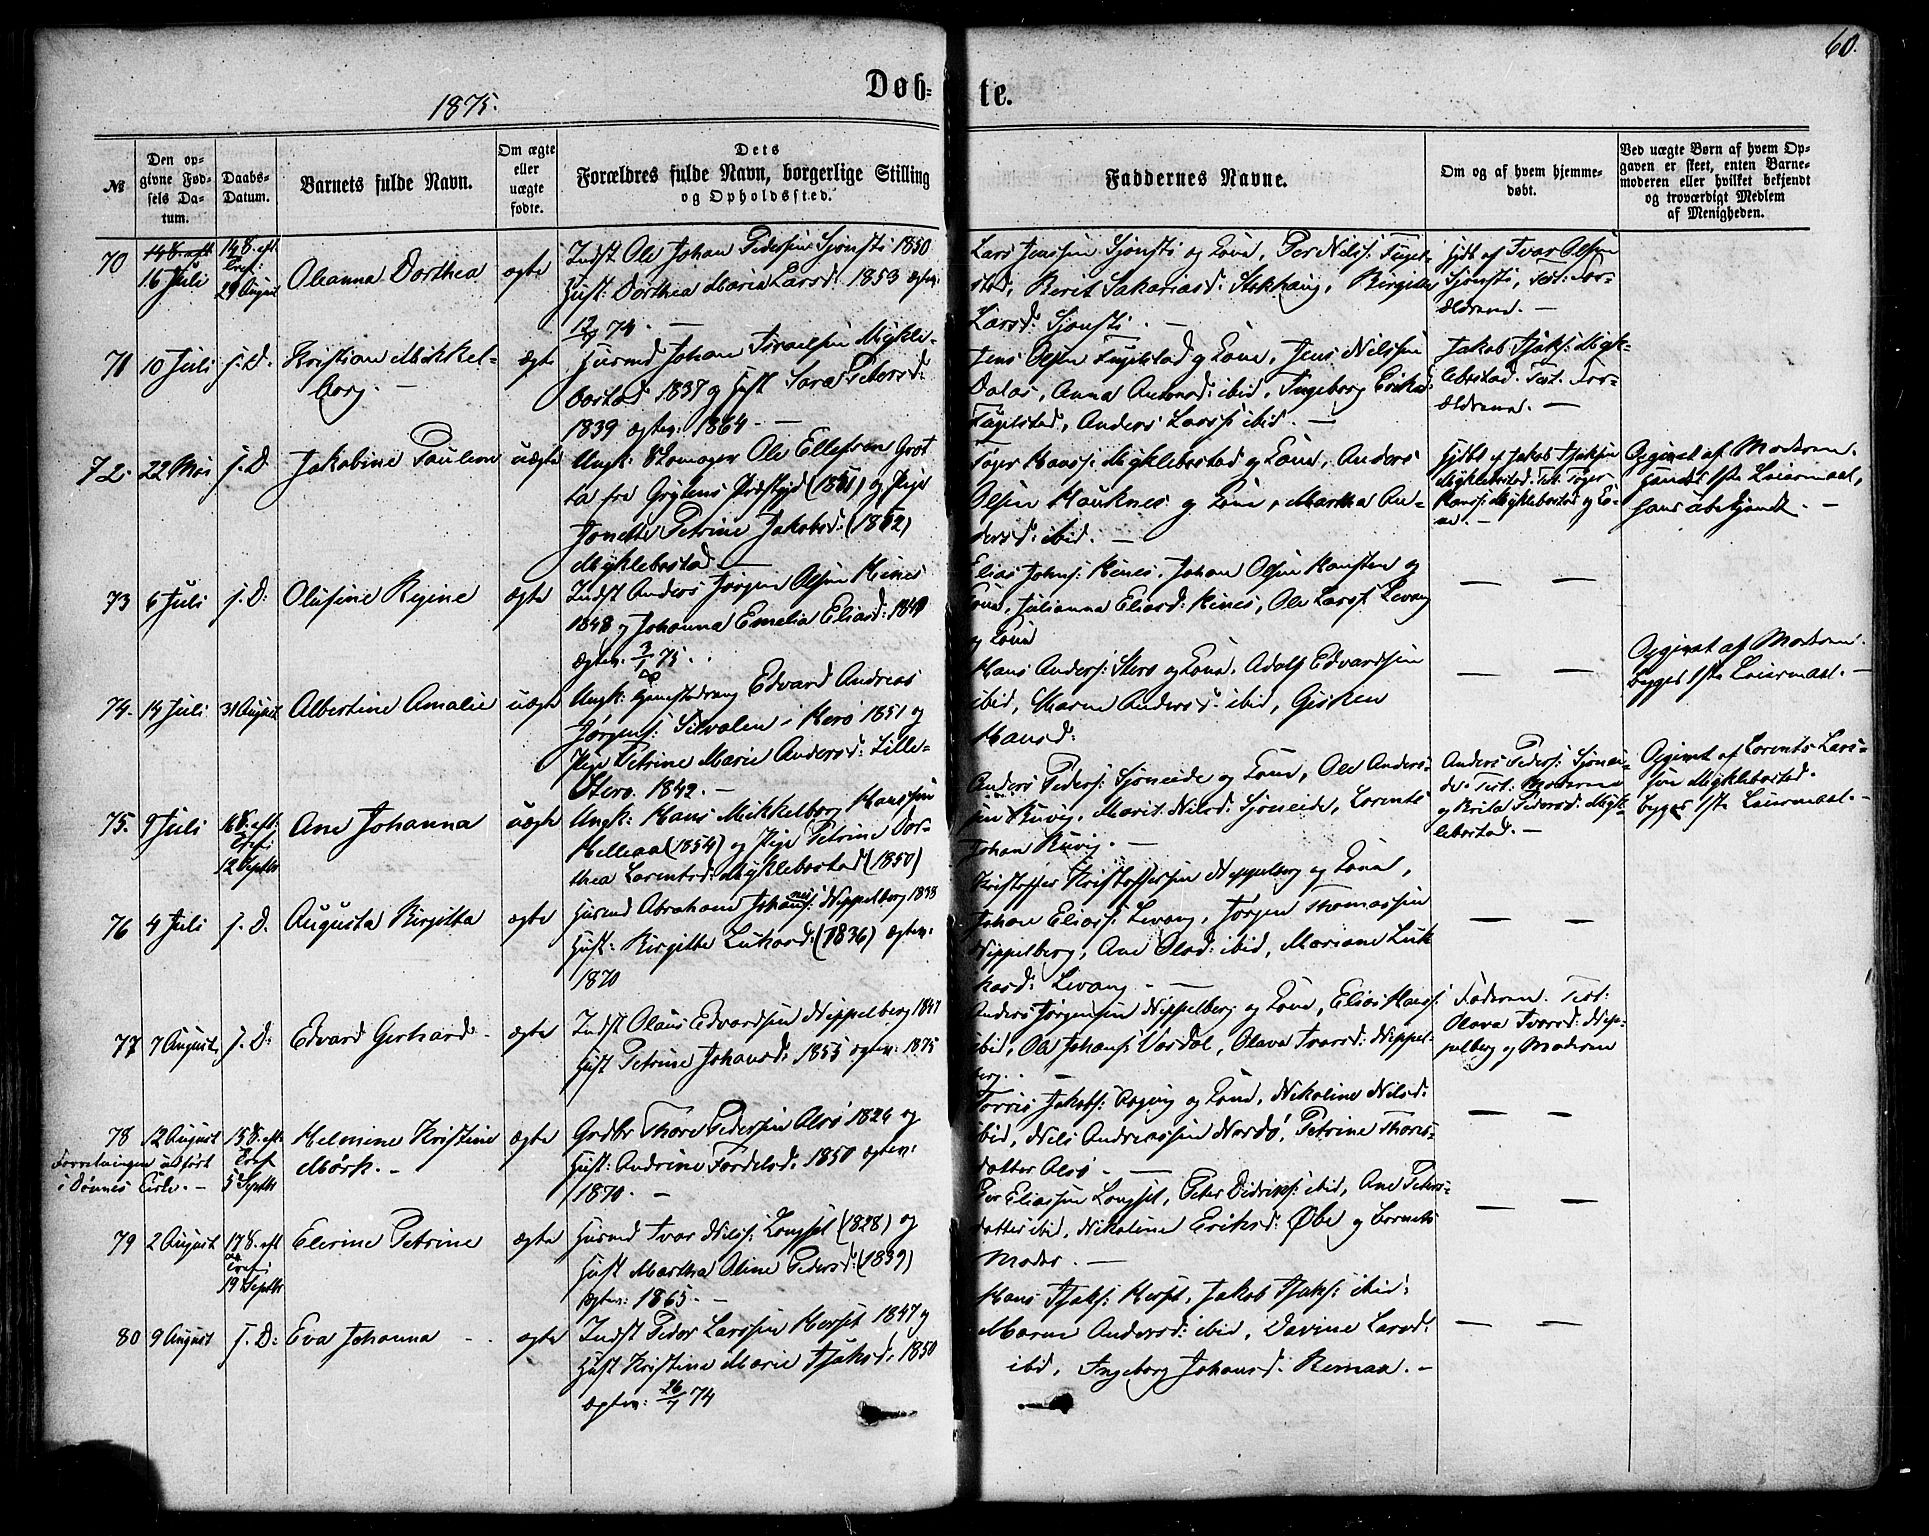 60.
1875.
Døb-
te.
№
Den op-
givne Fød-
sels Da-
tum.
Daabs-
Datum.
Barnets fulde Navn.
Om ægte
eller
uægte
fødte.
Dets
Forældres fulde Navn, borgerlige Stilling
og Opholdssted.
Faddernes Navne.
Om og af hvem hjemme-
døbt.
Ved uægte Børn af hvem Op-
gaven er skeet, enten Barne-
moderen eller hvilket bekjendt
og troværdigt Medlem
af Menigheden.
70
16 Juli
14 S. eft.
Tref:
29 August
Oleanna Dorthea
ægte
Indst Ole Johan Pedersen Sjonsti 1850
Hust: Dorthea Maria Larsd: 1853 ægtev:
74. —
Lars Jenssen Sjonsti og Kone, Per Nilss:
Berit Sakariasd: Stokhaug, Birgitte
Larsd: Sjonsti. —
Hjdt af Ivar Olsen
Sjonsti, Test: For-
ældrene. —
71
10 Juli
s. D.
Kristian Mikkel-
borg. —
ægte
Husmd Johan Israelsen Mykle-
bostad 1837 og Hust Sara Petersd:
1839 ægtev: 1864. —
Jens Olsen Fugelstad og Kone, Jens Nilssen
Dalos, Anna Antonsd: ibid, Ingeborg Eriksd:
Fugelstad, Anders Larss: ibid. —
Jakob Isaks: Myk-
lebostad. Test. For-
ældrene. —
72.
22 Mai
s. D.
Jakobine Pauline
uægte
Ungk: Skomager Ole Ellefsen Grøt
ta fra Grytens Præstgjd (1851) og Pige
Jonette Petrine Jakobsd: (1852)
Myklebostad —
Toger Hanss: Myklebostad og Kone, Anders
Olsen Hauknes og Kone, Martha An-
dersd: ibid. —
Hjdbt af Jakob Isaksen
Myklebostad. Test. Toger
Hanss: Myklebostad og Ko-
ne. —
Opgivet af Moderen.
Hendes 1ste Leiermaal,
hans ubekjendt. —
73
6 Juli
s. D:
Olufine Regine
ægte
Indst Anders Jørgen Olsen Hines
1848 og Johanna Emelia Eliasd: 1849
ægtev: 75.
Elias Johns: Hines, Johan Olsen Hansten og
Kone, Julianna Eliasd: Hines, Ole Larss: Levang
og Kone
— —
74.
14 Juli
31 August
Albertine Amalie
uægte
Ungk: Edvard Andreas
Jørgens: Silvalen i Herø 1851 og
Pige Petrine Marie Andersd: Lille-
Stero. 1842. —
Hans Anders: Stero og Kone, Adolf Edvardsen
ibid, Maren Andersd: ibid, Gisken
Hansd:
— —
Opgivet af Moderen.
Begges 1ste Leiermaal. —
75.
9 Juli
16 S. eft:
Tref:
12 Septbr
Ane Johanna
uægte
Ungk: Hans Mikkelborg Hanssen
Helleaa (1854) og Pige Petrine Dor-
thea Lorentsd: Myklebostad (1850)
Anders Peders: Sjoneide og Kone, Ole Anders-
sen Buvig, Marit Nilsd: Sjoneide, Lorents
Johan Buvig. —
Anders Peders: Sjonei-
de. Test. Moderen
og Brita Pedersd: Myk-
lebostad. —
Opgivet af Lorents Lars-
sen Myklebostad.
begges 1ste Leiermaal. —
76
4 Juli
s. D.
Augusta Birgitta
ægte
Husmd Abraham Johannes: Neppelberg 1838
Hust: Birgitte Lukasd: (1836) ægtev:
1870
Kristoffer Kristoffersen Neppelberg og Kone,
Johan Eliass: Levang, Jørgen Thomassen
Neppelberg, Ane Olsd: ibid, Mariane Luk
kasd: Levang. —
— —
77
7 August
s. D:
Edvard Gerhard
ægte
Indst Olaus Edvardsen Neppelberg 1847
Hust Petrine Johansd: 1855 ægtev: 1875
Anders Jørgensen Neppelberg og Kone, Elias Hans:
ibid, Ole Johans: Vardal, Olava Ivarsd: Neppel-
berg. —
Faderen. Test:
Olava Ivarsd: Nep-
pelberg og Moderen
78
12 August
15 S. eft
Tref
5 Septbr
Helmine Kristine
Mørk. —
Forretningen udført
i Dønnes Kirke. —
ægte
Grdbr Thore Pedersen Alsø 1826 og
Hust: Andrine Tordelsd: 1850 ægtev:
1870. —
Torris Jakobs: og Kone, Nikoline Nilsd:
ibid, Nils Andreassen Nordø, Petrine Thores-
datter Alsø —
— —
79
2 August
17 S. eft
Tref:
19 Septbr
Elerine Petrine
ægte
Husmd Ivar Nils: Longset (1828) og
Hust Martha Oline Pedersd: (1839)
ægtev: 1865. —
Per Eliassen Longset, Peter Didriks: ibid, Ane Peters-
datter ibid, Nikoline Eriksd: Øbe og Barnets
Moder. —
— —
80
9 August
s. D:
Eva Johanna
ægte
Indst Peder Larssen Herset 1847 og
Hust Kristine Marie Isaksd: 1850
ægtev: 26/7 74
Hans Isaks: Herset, Jakob Isaks: ibid,
Maren Andersd: ibid, Davine Larsd:
ibid, Ingeborg Johansd: Reman. —
— —